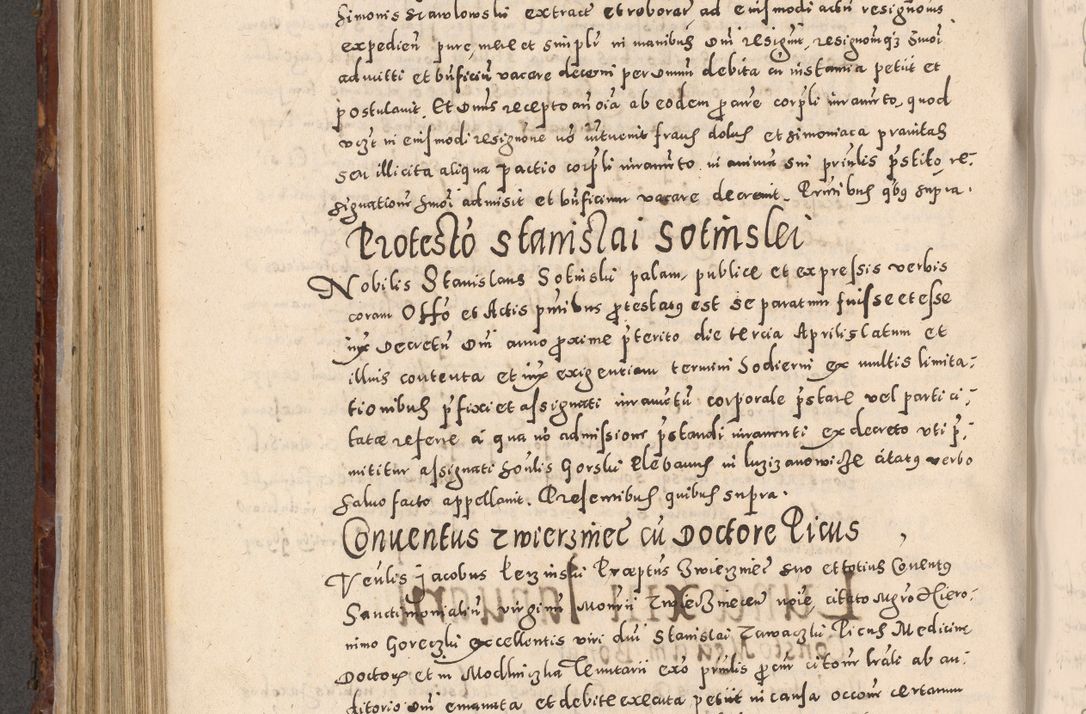 Simonis Stawlowski extract et roborat ad eiusmodi actū resignōis
expedien pure, mere et simpli in manibus Dni resignit, resignōnq3 hmōi
admitti et bnficiū vacare decerni per Dnum debita cū instantia petiit et
postulavit. Et Dnus recepto an oīa ab eodem p̄curē corpli iuramto, quod
in eiusmodi resignōne nō intuenit fraus dolus et simoniaca pravitas
seu illicita aliqua pactio corpli iuramto in animā sui prinlis pstito re
signationē hmōi admisit et bnficium vacare decreuit. Pntibus qbg supra.
Protestō Stanislai Sotinslei
Nobilis Stanislaus Sotinski palam, publice et expressis verbis
coram Offō et Actis pntibus protestatg est se paratum fuisse et esse
iux Decretū Dni anno proxime pterito die tercia Aprilis latum et
illius contenta et iux exigentiam termini hodierni ex multis limita=
tionibus pfixi et assignati iuramtū corporale pstare vel parti ci=
tatæ referre a qua nō admissione pstandi iuramenti ex decreto vti p=
mittitur assignati hōnlis Gorski Plebanus in luzizanowicze citatg verbo
salvo facto appellavit. Presentibus quibus supra.
Conventus Zwierzinec cū Doctore Picus
Venlis Jacobus Lerzinski Præptus Zwierzinec suo et totius Conventg
Sanctimonialiū virginū Monrii Zwierzinecen nōie citato Mgro Hiero=
nimo Goreczki excellentis viri dni Stanislai Zawaczki Picus Medicine
Doctoris et in Modlniczka Tenutarii exō prinlis p̄cur citōnē lrāli ab au=
ditorio Dni emanata et debite executa petiit in causa occōne certarum